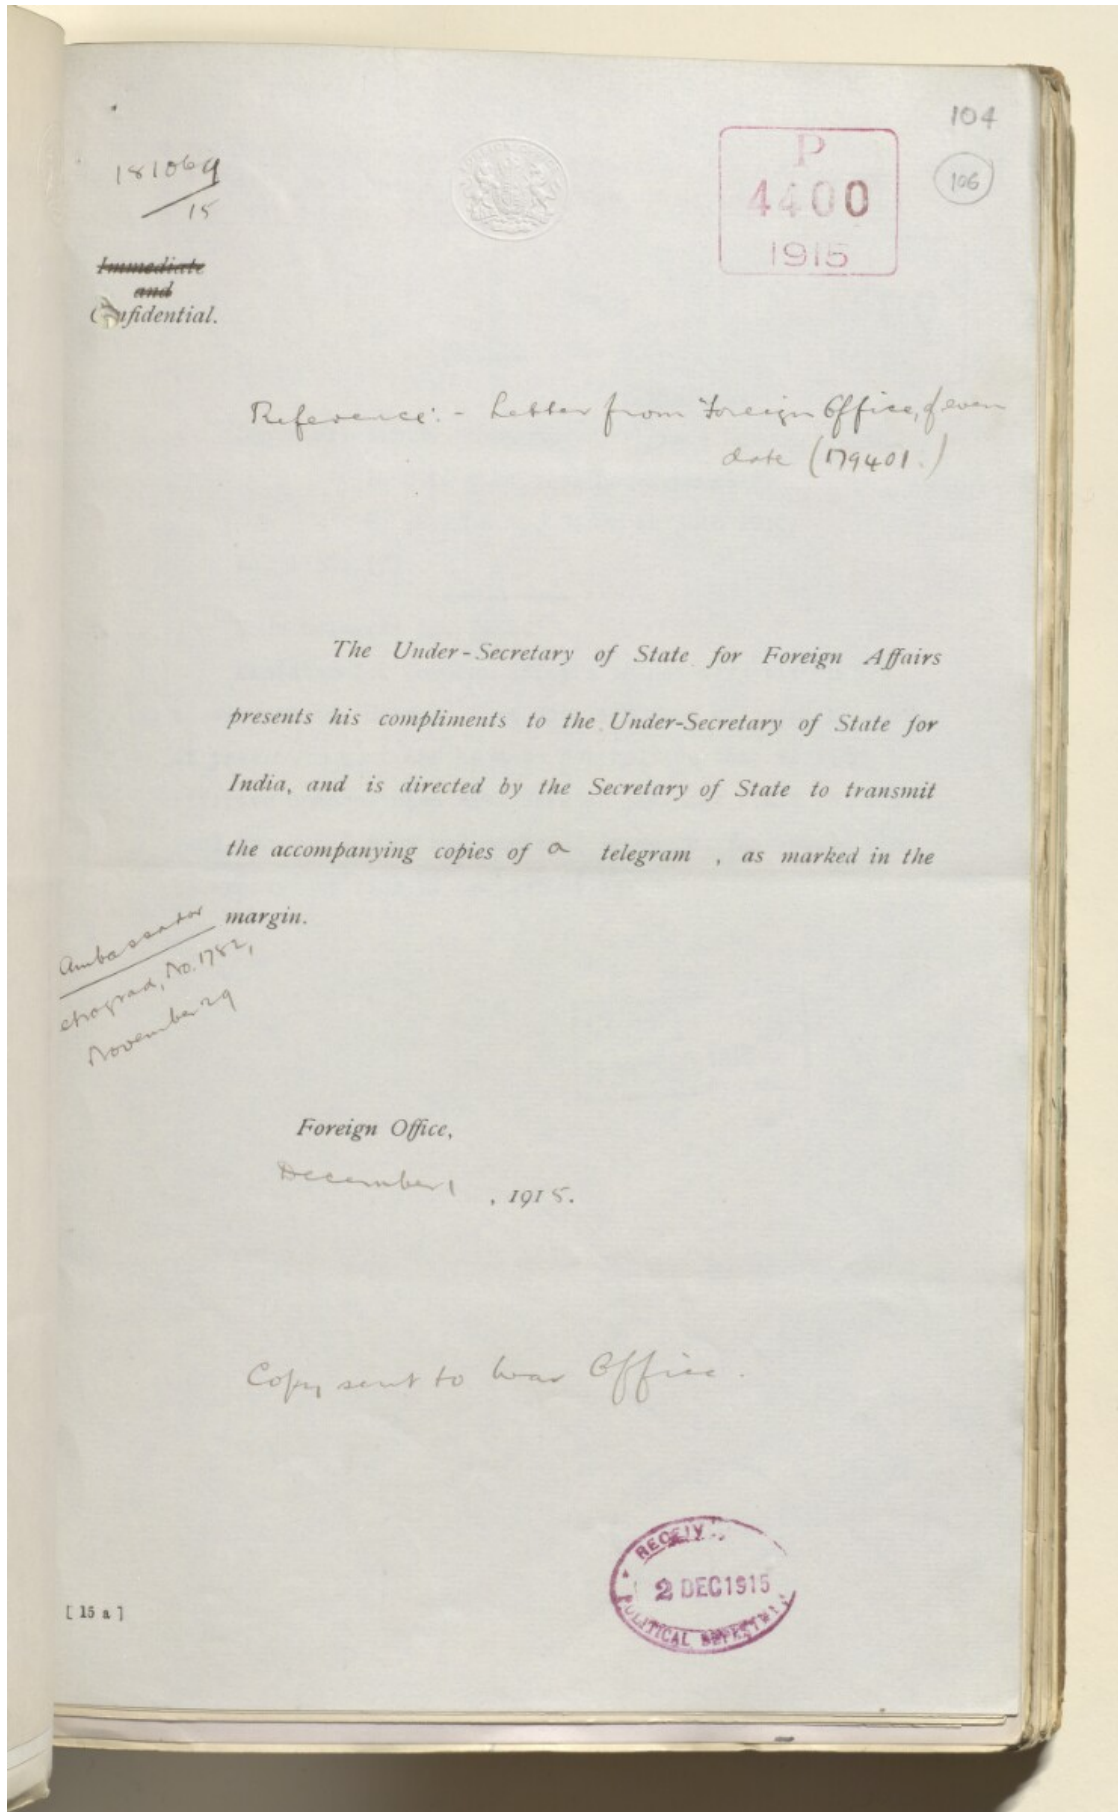 104
106
P
4400
1915
181069
15
Immediate
and
Confidential.
Reference: - Letter from Foreign Office, of even
date (179401.)
The Under-Secretary of State for Foreign Affairs
presents his compliments to the Under-Secretary of State for
India, and is directed by the Secretary of State to transmit
the accompanying copies of a telegram , as marked in the
margin.
Ambassador
etrograd, No. 1782,
November 29
Foreign Office,
December 1 , 1915.
Copy sent to War Office.
RECEIV
2 DEC 1915
POLITICAL
[ 15 a ]